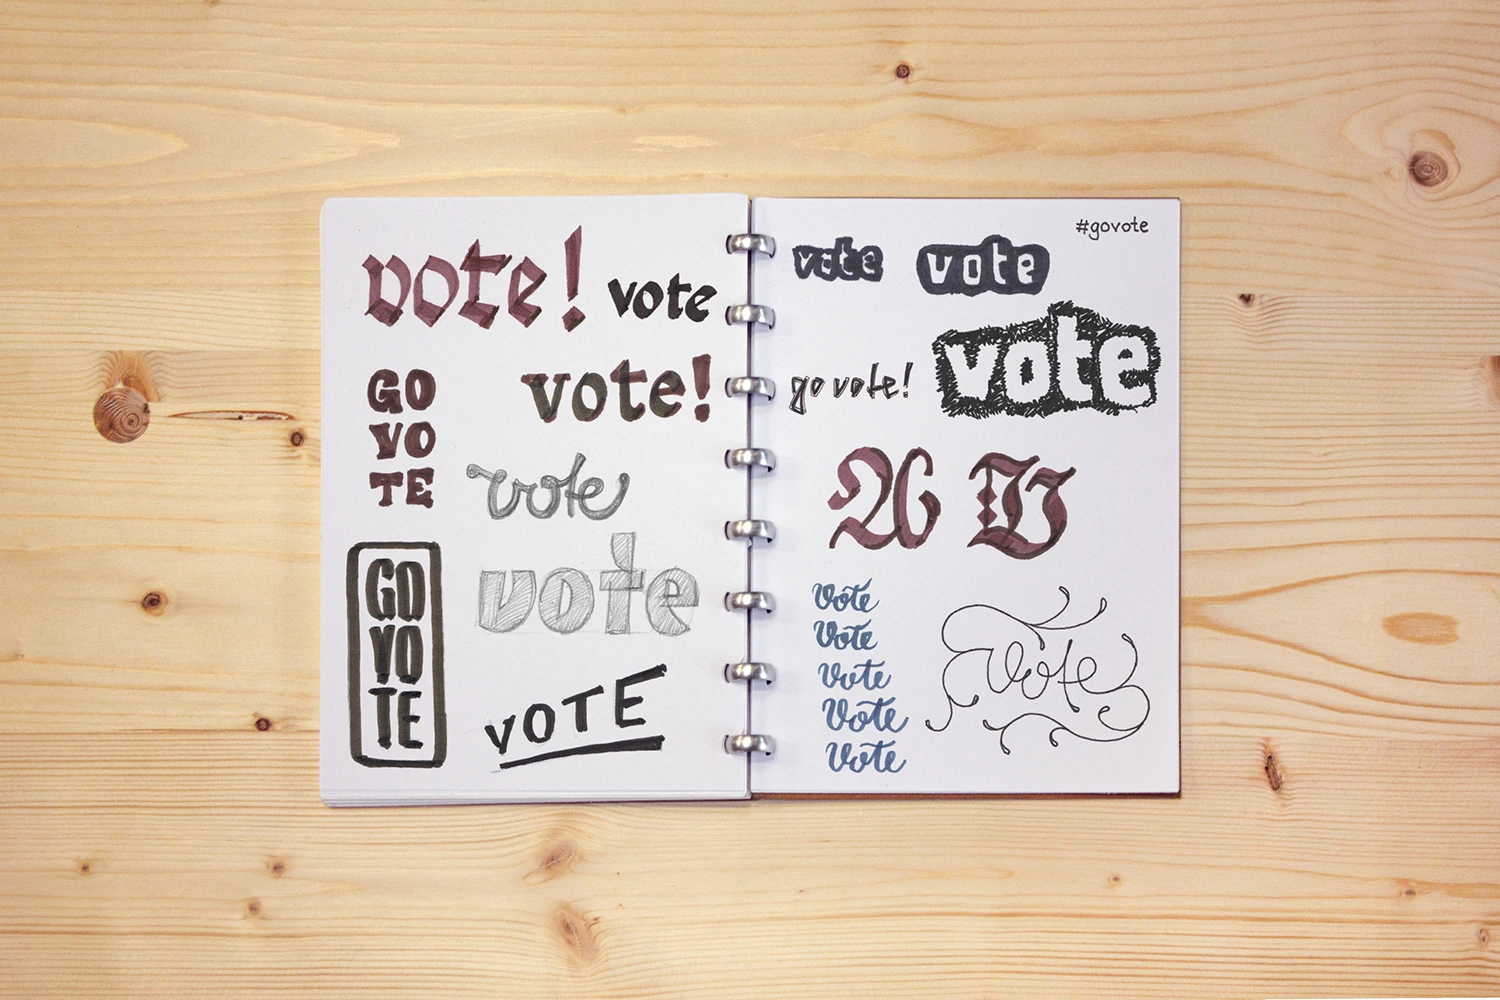 vote! vote
GO
VO
TE
vote!
vote
vote
GO
VO
TE
VOTE
#govote
vote vote
vote
go vote!
A V
Vote
Vote
Vote
Vote
Vote
Vote